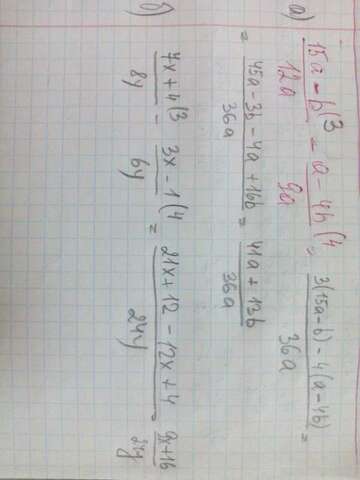 а) (15a - b)/12a (3 = (a - 4b)/9a (4 = (3(15a-b) - 4(a-4b))/36a =
= (45a - 3b - 4a + 16b)/36a = (41a + 13b)/36a
б) (7x + 4)/8y (3 - (3x - 1)/6y (4 = (21x + 12 - 12x + 4)/24y = (9x + 16)/24y